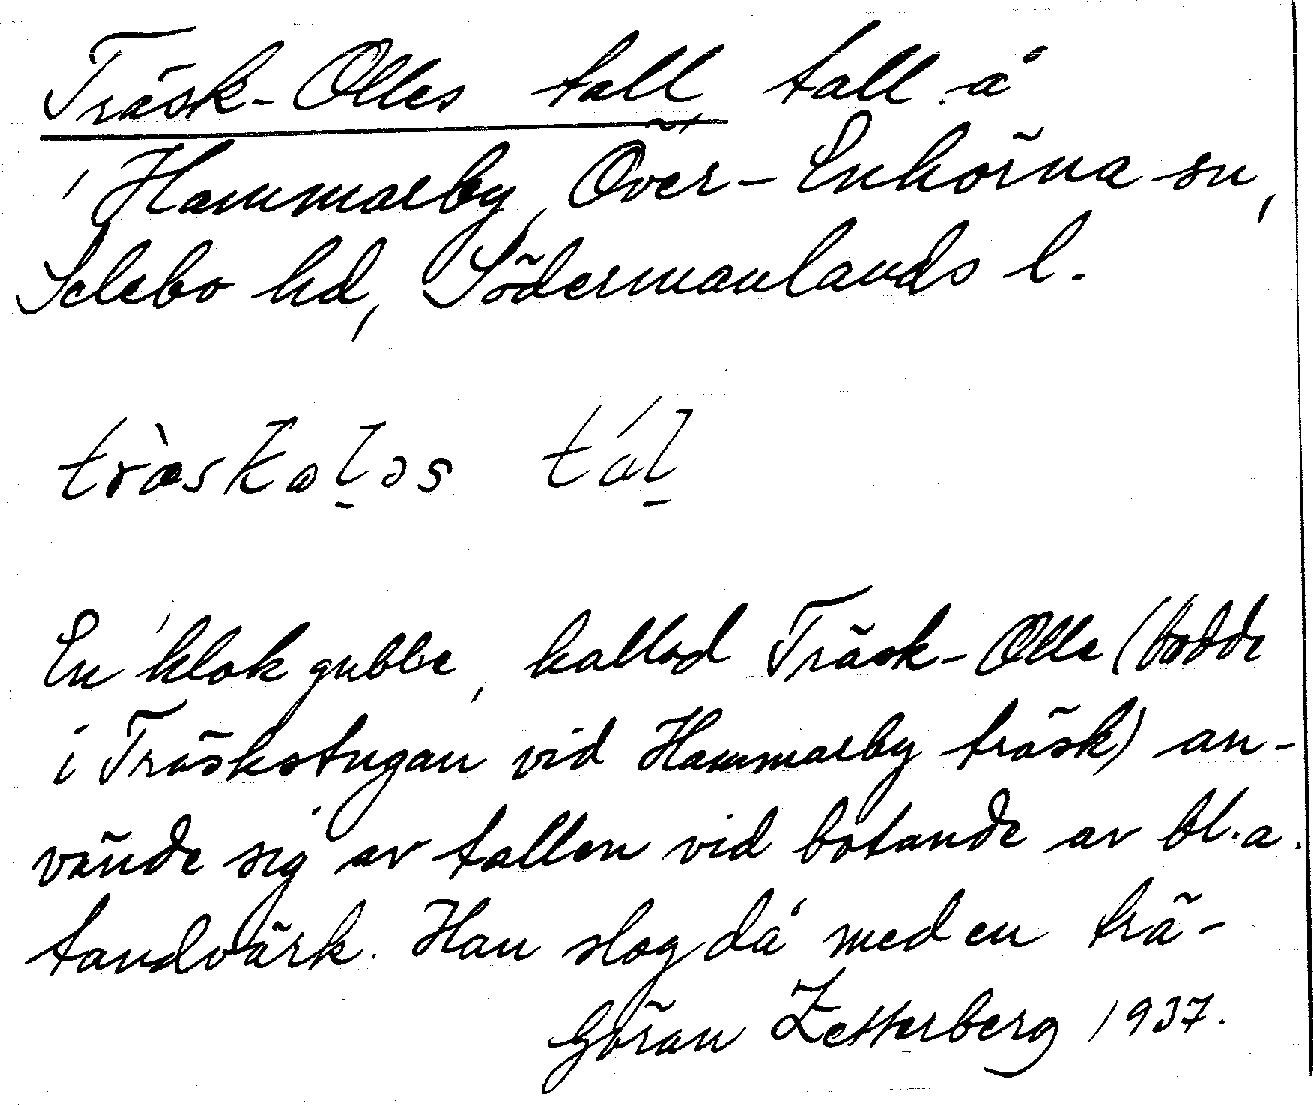 Träsk-Olles tall tall å
Hammarby, Över-Enhörna sn,
Selebo hd, Södermanlands l.
træ̀skɷḷəs táḷ
En klok gubbe, kallad Träsk-Olle (bodde
i Träskstugan vid Hammarby träsk) an-
vände sig av tallen vid botande av bl.a.
tandvärk. Han slog då med en trä-
Göran Zetterberg 1937.